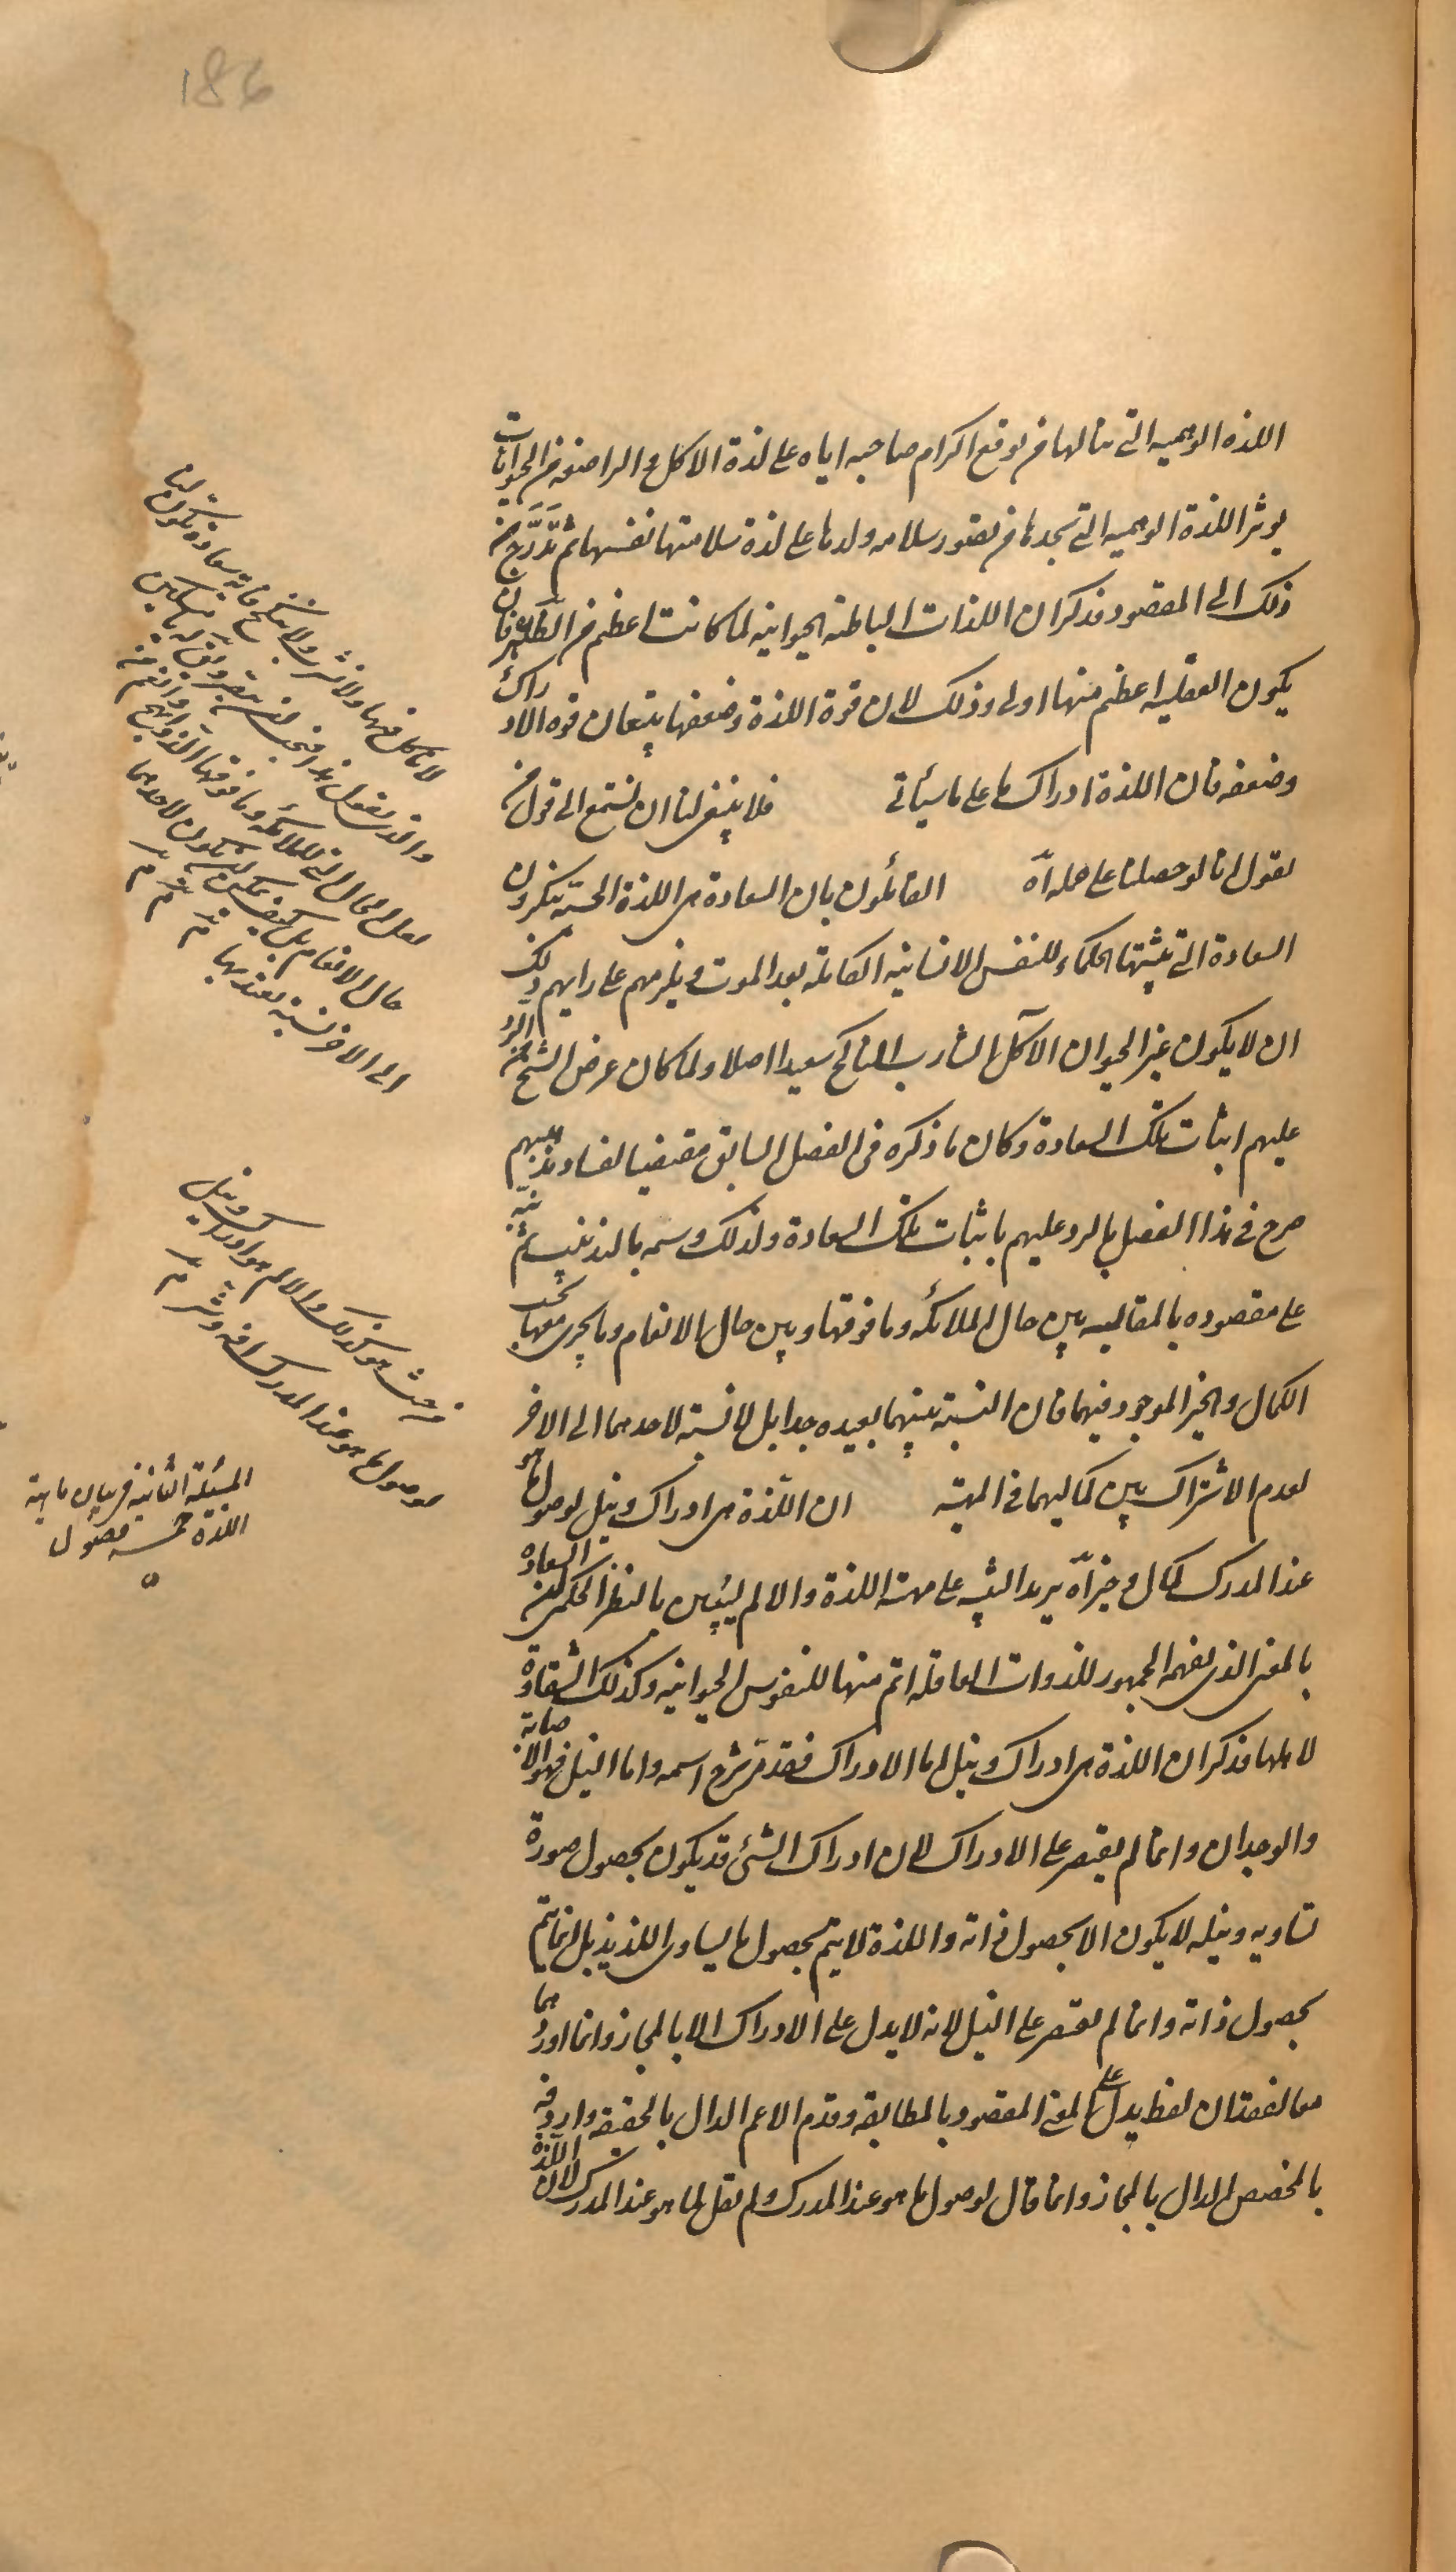 186
اللذه الوهميه التى ينالها من توقع اكرام صاحبه اياه على لذة الاكل والراضعه من الحيوانات
يوثر اللذة الوهميه التى تجدها من تصور سلامه ولدها على لذة سلامتها نفسها ثم تدرج من
ذلك الى المقصود فذكر ان اللذات الباطنه الحيوانيه لما كانت اعظم من الظاهره فان
يكون العقليه اعظم منها اولى وذلك لان قوة اللذة وضعفها يتبعان قوه الادراك
وضعفه فان اللذة ادراك ما على ما سيأتى فلا ينبغى لنا ان نستمع الى قول من
يقول انا لو حصلنا على جمله اه القائلون بان السعادة هى اللذة الحسيه ينكرون
السعادة التى يثبتها الحكماء للنفس الانسانيه الكامله بعد الموت ويلزمهم على رايهم ذلك
ان لا يكون غير الحيوان الآكل الشارب الناكح سعيدا اصلا ولما كان غرض الشيخ من الرد
عليهم اثبات تلك السعادة وكان ما ذكره فى الفصل السابق مقتضيا لفساد مذهبهم
صرح فى هذا الفصل بالرد عليهم باثبات تلك السعادة ولذلك وسمه بالتذنيب ثم نبه
على مقصوده بالمقايسه بين حال الملائكه وما فوقها وبين حال الانعام وما يجرى مجراها بحسب
الكمال والخير الموجود فيهما فان النسبة بينهما بعيده جدا بل لا نسبة لاحدهما الى الاخر
لعدم الاشتراك بين كماليهما فى المهيه ان اللذة هى ادراك ونيل لوصول ما هو
عند المدرك كمال وخير اه يريد التنبيه على مهيه اللذة والالم ليتبين بالنظر الحكمى ان السعاده
بالمعنى الذى يفهمه الجمهور للذوات العاقله اتم منها للنفوس الحيوانيه وكذلك الشقاوة
لاهلها فذكر ان اللذة هى ادراك ونيل اما الادراك فقد مر شرح اسمه واما النيل فهو الاصابة
والوجدان وانما لم يقتصر على الادراك لان ادراك الشئ قد يكون بحصول صورة
تساويه ونيله لا يكون الا بحصول ذاته واللذة لا يتم بحصول ما يساوى اللذيذ بل انما يتم
بحصول ذاته وانما لم يقتصر على النيل لانه لا يدل على الادراك الا بالمجاز وانما اوردهما
معا لفقدان لفظ يدل على المعنى المقصود بالمطابقه وقدم الاعم الدال بالحقيقه واردفه
بالمخصص الدال بالمجاز وانما قال لوصول ما هو عند المدرك ولم يقل لما هو عند المدرك لان اللذة
لا ناكل فيها ولا نشرب ولا ننكح فاية سعادة تكون لنا
والذى يقول هذا فيجب ان يبصر ويق له يا مسكين
لعل الحال التى للملائكه وما فوقها الذ وابهج وانعم من
حال الانعام بل كيف يمكن ان يكون لاحدهما
الى الاخر نسبة يعتد بها
من حيث هو كذلك والالم هو ادراك ونيل
لوصول ما هو عند المدرك افه وشر
المسئلة الثانية فى بيان ماهية
اللذة خمسه فصول